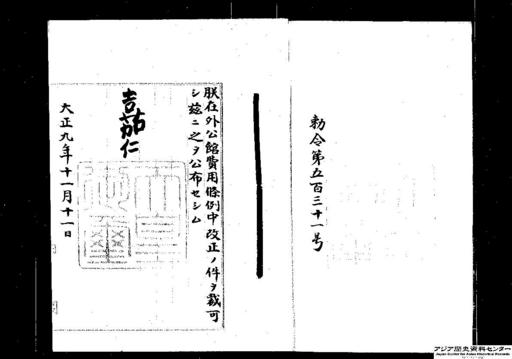 勅令第五百三十一号
朕在外公館費用條例中改正ノ件ヲ裁可
シ茲ニ之ヲ公布セシム
嘉仁
大正九年十一月十一日
アジア歴史資料センター
Japan Center for Asian Historical Records